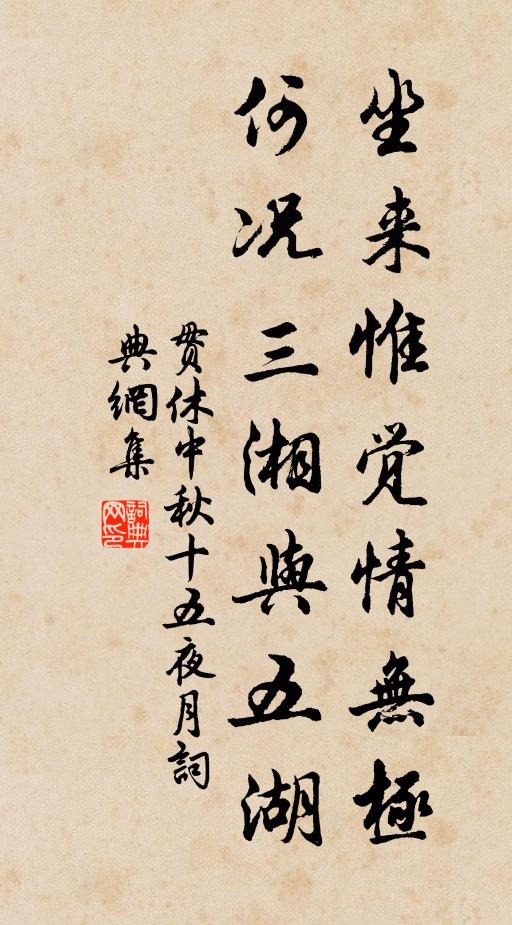 坐来惟觉情無極
何况三湘與五湖
貫休中秋十五夜月詞
典網集
詞典網印